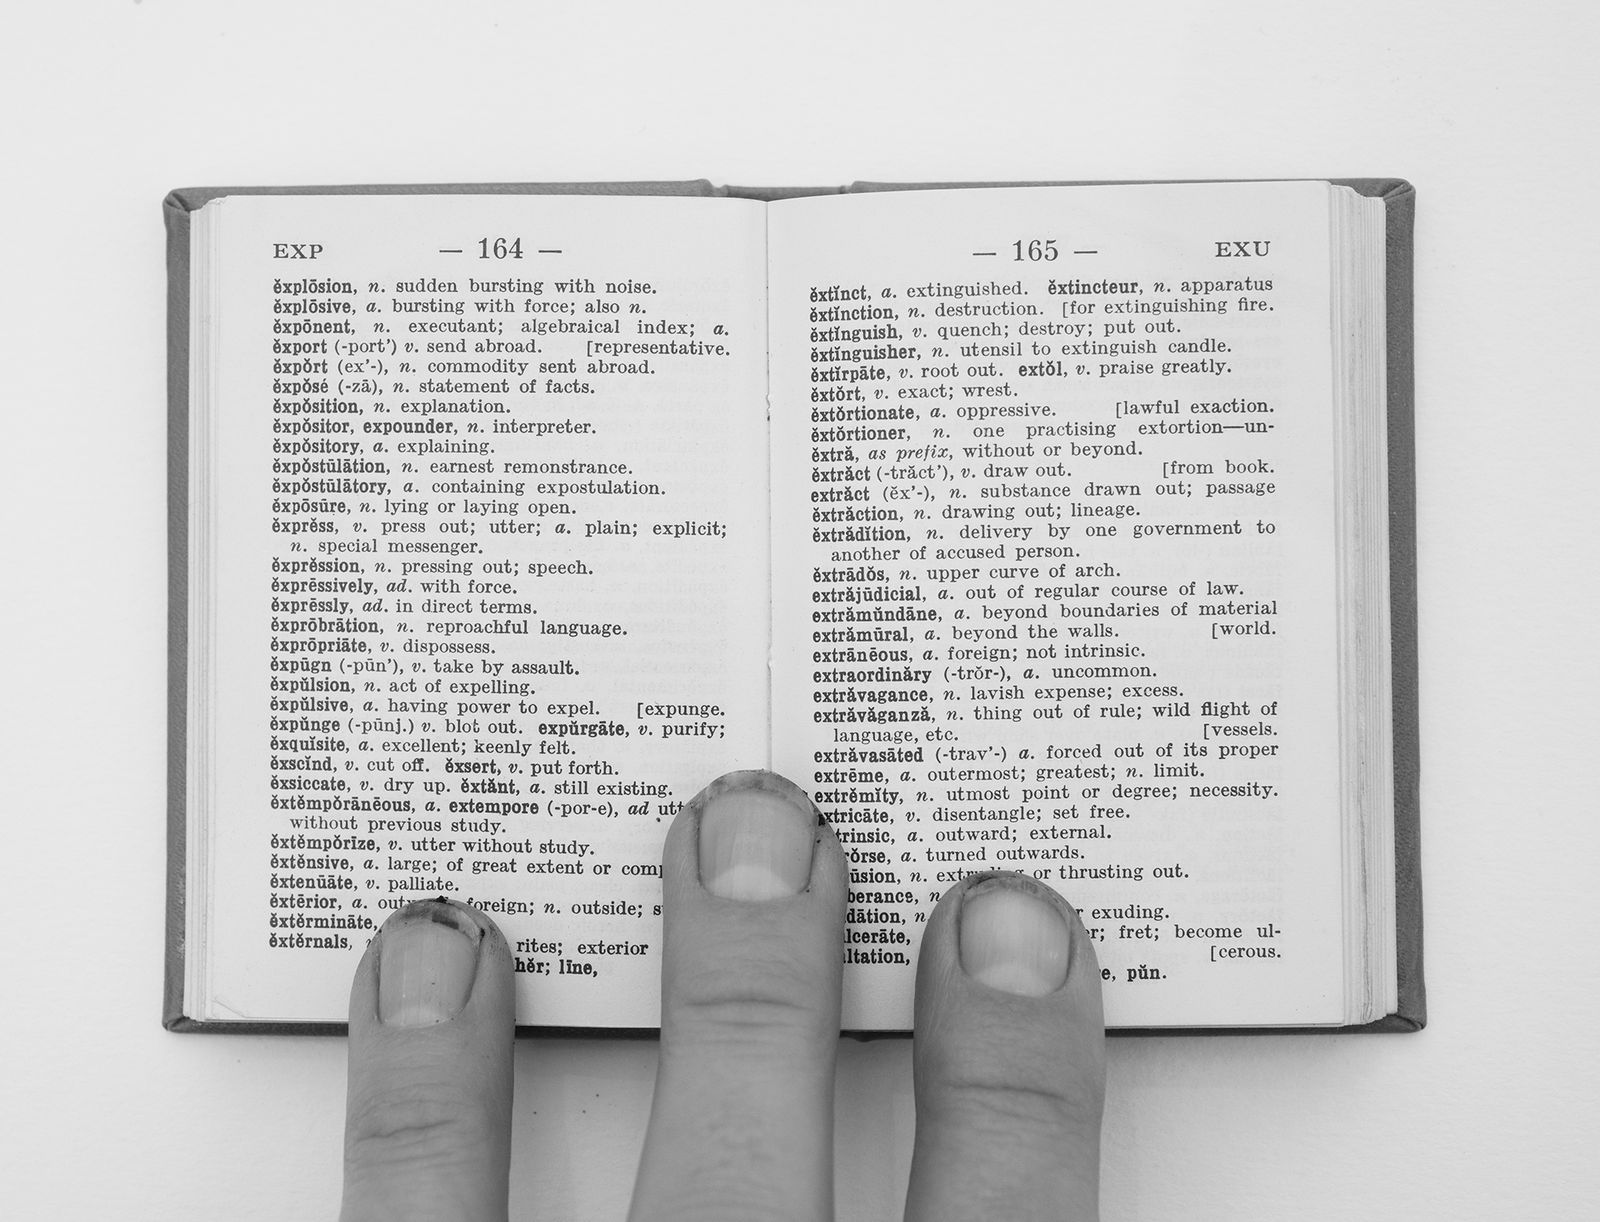 EXP — 164 —
ĕxplōsion, n. sudden bursting with noise.
ĕxplōsive, a. bursting with force; also n.
ĕxpōnent, n. executant; algebraical index; a.
ĕxport (-port’) v. send abroad. [representative.
ĕxpŏrt (ex’-), n. commodity sent abroad.
ĕxpōsé (-zā), n. statement of facts.
ĕxpŏsition, n. explanation.
ĕxpŏsitor, expounder, n. interpreter.
ĕxpŏsitory, a. explaining.
ĕxpŏstūlātion, n. earnest remonstrance.
ĕxpŏstūlātory, a. containing expostulation.
ĕxpōsūre, n. lying or laying open.
ĕxprĕss, v. press out; utter; a. plain; explicit;
n. special messenger.
ĕxprĕssion, n. pressing out; speech.
ĕxprĕssively, ad. with force.
ĕxprĕssly, ad. in direct terms.
ĕxprōbrātion, n. reproachful language.
ĕxprōpriāte, v. dispossess.
ĕxpūgn (-pūn’), v. take by assault.
ĕxpŭlsion, n. act of expelling.
ĕxpŭlsive, a. having power to expel. [expunge.
ĕxpŭnge (-pŭnj.) v. blot out. expŭrgāte, v. purify;
ĕxquĭsite, a. excellent; keenly felt.
ĕxscĭnd, v. cut off. ĕxsert, v. put forth.
ĕxsiccate, v. dry up. ĕxtănt, a. still existing.
ĕxtĕmpŏrānĕous, a. extempore (-por-e), ad utt
without previous study.
ĕxtĕmpŏrīze, v. utter without study.
ĕxtĕnsive, a. large; of great extent or com
ĕxtenūāte, v. palliate.
ĕxtērior, a. foreign; n. outside;
ĕxtĕrmināte,
ĕxtĕrnals, rites; exterior
hĕr; līne,
— 165 — EXU
ĕxtĭnct, a. extinguished. ĕxtincteur, n. apparatus
ĕxtĭnction, n. destruction. [for extinguishing fire.
ĕxtĭnguish, v. quench; destroy; put out.
ĕxtĭnguisher, n. utensil to extinguish candle.
ĕxtĭrpāte, v. root out. extŏl, v. praise greatly.
ĕxtŏrt, v. exact; wrest.
ĕxtŏrtionate, a. oppressive. [lawful exaction.
ĕxtŏrtioner, n. one practising extortion—un-
ĕxtră, as prefix, without or beyond.
ĕxtrăct (-trăct’), v. draw out. [from book.
extrăct (ĕx’-), n. substance drawn out; passage
ĕxtrăction, n. drawing out; lineage.
ĕxtrădĭtion, n. delivery by one government to
another of accused person.
ĕxtrādŏs, n. upper curve of arch.
extrăjūdicial, a. out of regular course of law.
extrămŭndāne, a. beyond boundaries of material
extrămūral, a. beyond the walls. [world.
extrānēous, a. foreign; not intrinsic.
extraordinăry (-trŏr-), a. uncommon.
extrăvagance, n. lavish expense; excess.
extrăvăganză, n. thing out of rule; wild flight of
language, etc. [vessels.
extrăvasāted (-trav’-) a. forced out of its proper
extrēme, a. outermost; greatest; n. limit.
extrĕmĭty, n. utmost point or degree; necessity.
xtricāte, v. disentangle; set free.
trinsic, a. outward; external.
rŏrse, a. turned outwards.
ūsion, n. extruding or thrusting out.
berance, n
dātion, n. r exuding.
lcerāte, er; fret; become ul-
ltation, [cerous.
e, pŭn.